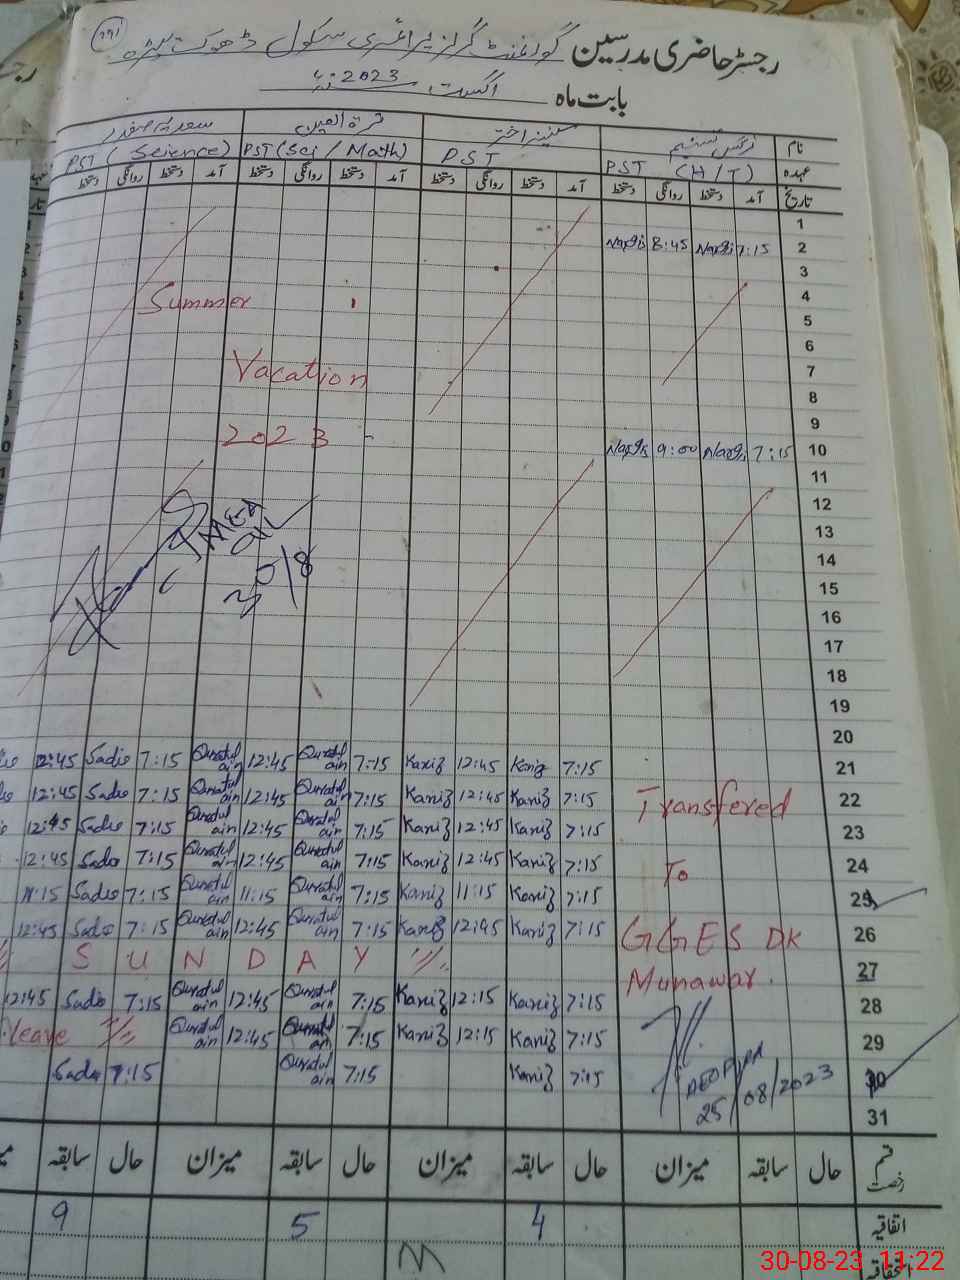 رجسٹر حاضری مدرسین گورنمنٹ گرلز پرائمری سکول ڈھوک
بابت ماہ اگست 2023ء
نام نرگس تسنیم کنیز اختر قرۃ العین سعدیہ صفدر
عہدہ PST (H/T) PST PST (Sci / Math) PST (Science)
تاریخ آمد دستخط روانگی دستخط آمد دستخط روانگی دستخط آمد دستخط روانگی دستخط آمد دستخط روانگی دستخط
1
2 7:15 Nargis 8:45 Nargis
3
4
Summer
5
6
7
Vacation
8
9
2023
10 7:15 Nargis 9:00 Nargis
11
12
13
14
30/8
15
16
17
18
19
20
21 7:15 Kaniz 12:45 Kaniz 7:15 Quratul ain 12:45 Quratul ain 7:15 Sadia 12:45
22 7:15 Kaniz 12:45 Kaniz 7:15 Quratul ain 12:45 Quratul ain 7:15 Sadia 12:45
Transfered
23 7:15 Kaniz 12:45 Kaniz 7:15 Quratul ain 12:45 Quratul ain 7:15 Sadia 12:45
24 7:15 Kaniz 12:45 Kaniz 7:15 Quratul ain 12:45 Quratul ain 7:15 Sadia 12:45
To
25 7:15 Kaniz 11:15 Kaniz 7:15 Quratul ain 11:15 Quratul ain 7:15 Sadia 11:15
26 7:15 Kaniz 12:45 Kaniz 7:15 Quratul ain 12:45 Quratul ain 7:15 Sadia 12:45
GGES DK
27 SUNDAY
Munawar.
28 7:15 Kaniz 12:15 Kaniz 7:15 Quratul ain 12:45 Quratul ain 7:15 Sadia 12:45
29 7:15 Kaniz 12:15 Kaniz 7:15 Quratul ain 12:45 Quratul ain leave
30 7:15 Kaniz 7:15 Quratul ain 7:15 Sadia
25/08/2023
31
قسم رخصت حال سابقہ میزان حال سابقہ میزان حال سابقہ میزان حال سابقہ
اتفاقیہ 4 5 9
30-08-23 11:22